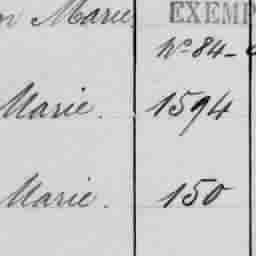 Marie EXEMP
No 84-
Marie. 1594
Marie. 150